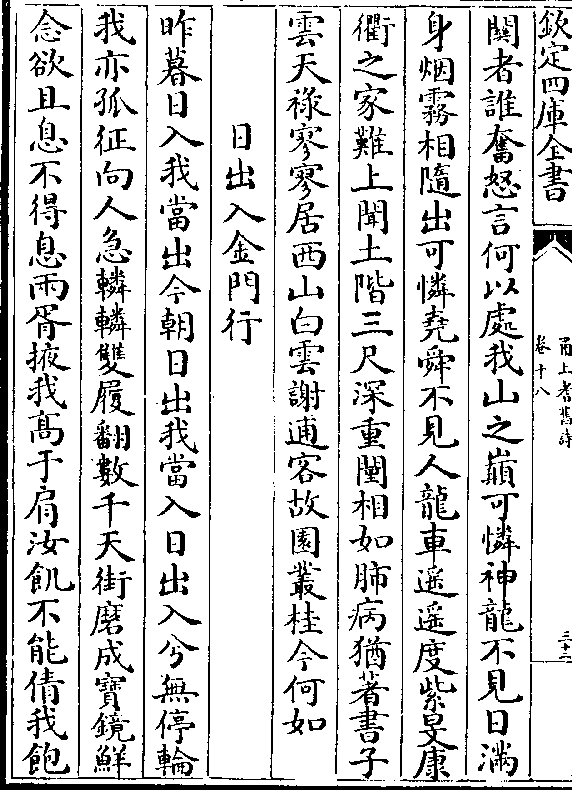 欽定四庫全書
甬上耆舊詩
卷十八
三十二
關者誰奮怒言何以處我山之巔可憐神龍不見日滿
身烟霧相隨出可憐堯舜不見人龍車遥遥度紫旻康
衢之家難上聞土階三尺深重闉相如肺病猶著書子
雲天祿寥寥居西山白雲謝逋客故園叢桂今何如
日出入金門行
昨暮日入我當出今朝日出我當入日出入兮無停輪
我亦孤征向人急轔轔雙履翻數千天街磨成寶鏡鮮
念欲且息不得息兩胥掖我髙于肩汝飢不能倩我飽